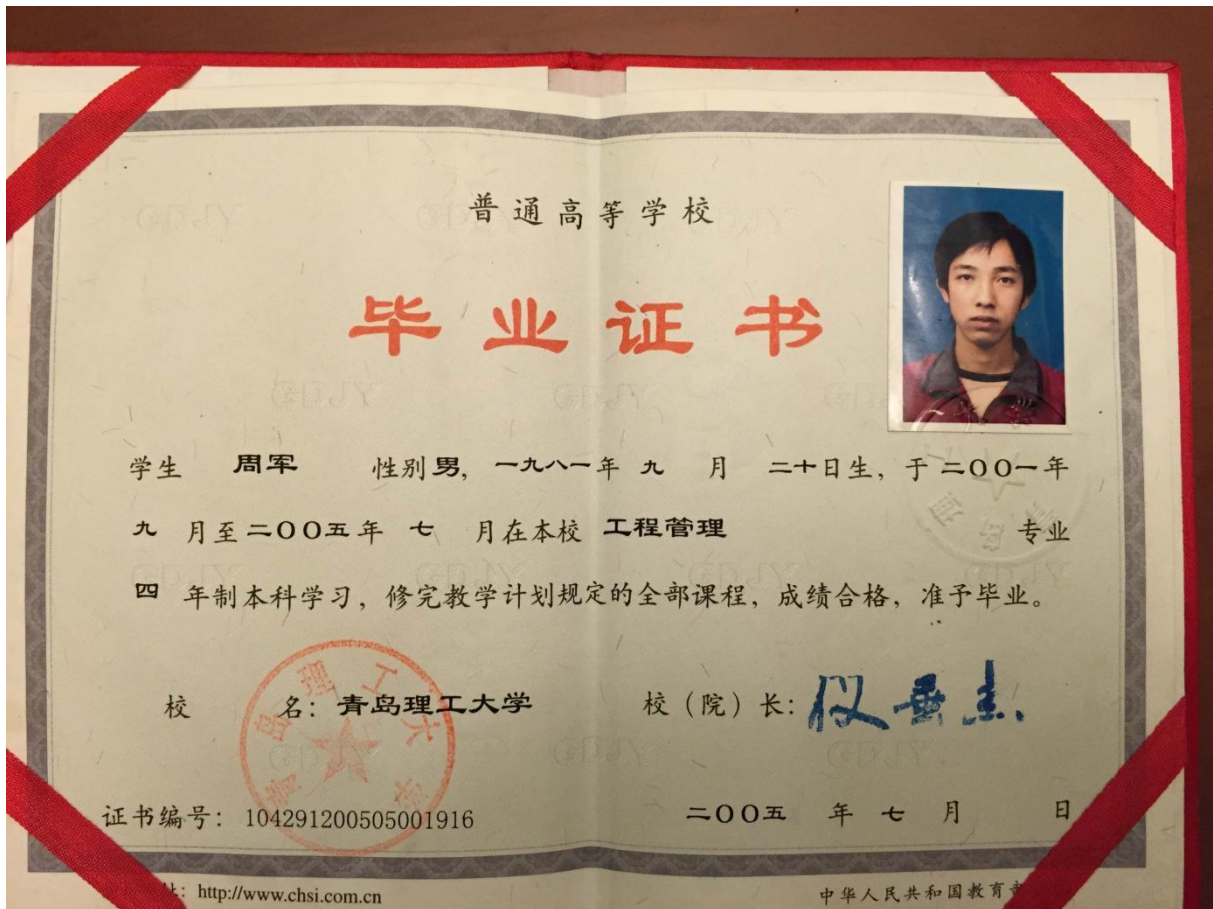 普通高等学校
毕业证书
学生 周军 性别男, 一九八一年 九 月 二十日生, 于二OO一年
九 月至二OO五年 七 月在本校 工程管理 专业
四 年制本科学习, 修完教学计划规定的全部课程, 成绩合格, 准予毕业。
校 名: 青岛理工大学 校（院）长: 仪垂杰
青岛理工大学
证书编号: 104291200505001916 二OO五 年 七 月 日
址: http://www.chsi.com.cn 中华人民共和国教育